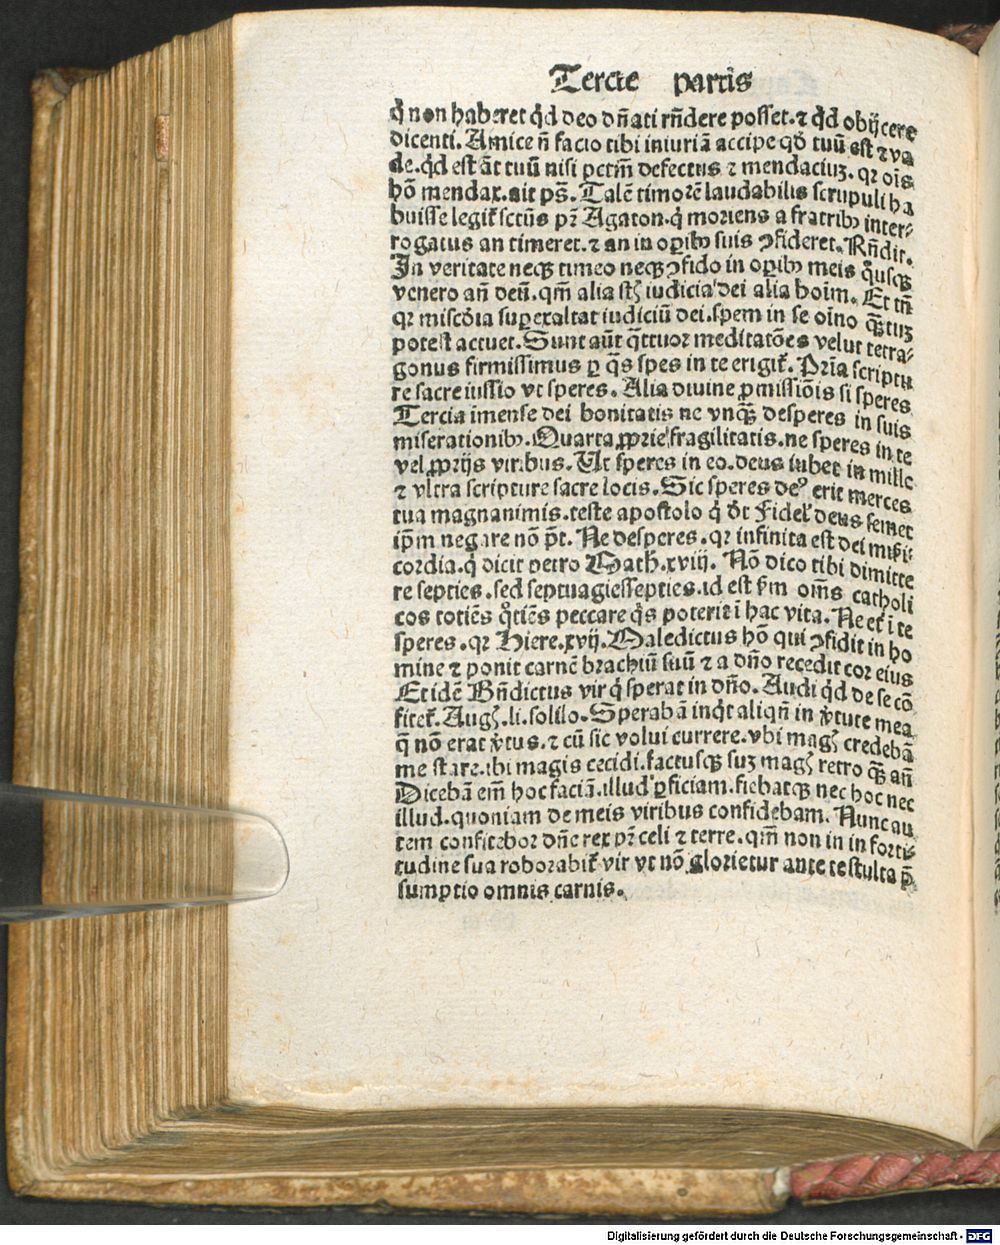 Tercie partis
q̇ non haberet qd̛ deo dn̄ati rn̄dere posset. ⁊ qd̛ obijcere
dicenti. Amice n̄ facio tibi iniuriā accipe qd̛ tuū est ⁊ va
de. qd̛ est āt tuū nisi pctm̄ defectus ⁊ mendaciuꝫ. qꝛ oīs
hō mendax. ait pś. Talē timorē laudabilis scrupuli ha
buisse legit᷑ sctūs pr̄ Agaton. q̇ moriens a fratribꝰ inter⸗
rogatus an timeret. ⁊ an in oꝑibꝰ suis ꝯfideret. Rn̄dit.
In veritate neqꝫ timeo neqꝫ ꝯfido in oꝑibꝰ meis q̊usqꝫ
venero an̄ deū. qm̄ alia st̄ iudicia dei alia hoīm. Et tn̄
qꝛ miscd̓ia suꝑexaltat iudiciū dei. spem in se oīno qꝫ̄tuꝫ
potest actuet. Sunt aūt q̄ttuor meditatōes velut tetra⸗
gonus firmissimus ꝑ q̄s spes in te erigit᷑. Prīa scriptu
re sacre iussio vt speres. Alia diuine ꝓmissiōis si speres
Tercia imense dei bonitatis ne vnqꝫ̄ desperes in suis
miserationibꝰ. Quarta ꝓprie fragilitatis. ne speres in te
vel ꝓprijs viribus. Ut speres in eo. deus iubet in mille
⁊ vltra scripture sacre locis. Sic speres deꝰ erit merces
tua magnanimis. teste apostolo q̇ dt̛ Fidel᷑ deus semet
ip̄m negare nō pt̄. Ne desperes. qꝛ infinita est dei mīsi
cordia. q̇ dicit petro Math. xviij. Nō dico tibi dimitte
re septies. sed septuagiessepties. id est ẜm om̄s catholi
cos totiēs q̊tiēs peccare q̇s poterit ī hac vita. Ne et᷑ ī te
speres. qꝛ Hiere. xvij. Maledictus hō qui ꝯfidit in ho
mine ⁊ ponit carnē brachiū suū ⁊ a dn̄o recedit cor eius
Et idē Bn̄dictus vir q̇ sperat in dn̄o. Audi qd̛ de se cō
fitet᷑. Augꝭ. li. solilo. Sperabā inqt̛ aliqn̄ in v̓tute mea
q̄ nō erat v̓tus. ⁊ cū sic volui currere. vbi magꝭ credebā
me stare. ibi magis cecidi. factusqꝫ suꝫ magꝭ retro qꝫ̄ an̄
Dicebā em̄ hoc faciā. illud ꝑficiam. fiebatqꝫ nec hoc nec
illud. quoniam de meis viribus confidebam. Nunc au
tem confitebor dn̄e rex pr̄ celi ⁊ terre. qm̄ non in in forti⸗
tudine sua roborabit᷑ vir vt nō glorietur ante te stulta p̄⸗
sumptio omnis carnis.
Digitalisierung gefördert durch die Deutsche Forschungsgemeinschaft - DFG